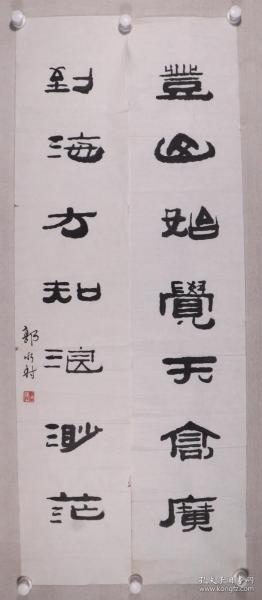 登山始覺天高廣
到海方知浪渺茫
郭
孔夫子旧书网